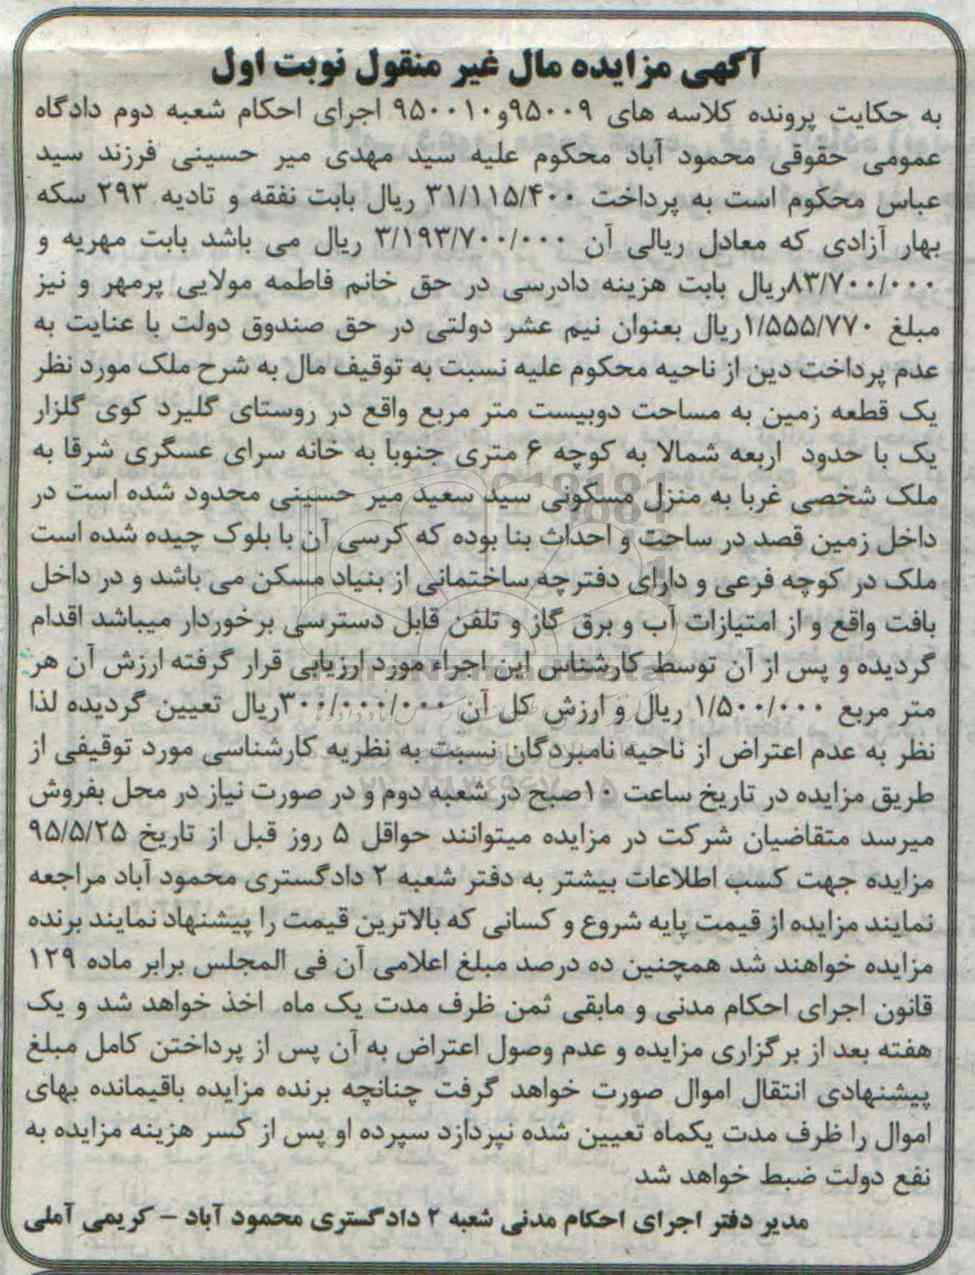 آگهی مزایده مال غیر منقول نوبت اول
به حکایت پرونده کلاسه های ۹۵۰۰۹و۹۵۰۰۱۰ اجرای احکام شعبه دوم دادگاه
عمومی حقوقی محمود آباد محکوم علیه سید مهدی میر حسینی فرزند سید
عباس محکوم است به پرداخت ۳۱/۱۱۵/۴۰۰ ریال بابت نفقه و تادیه ۲۹۳ سکه
بهار آزادی که معادل ریالی آن ۳/۱۹۳/۷۰۰/۰۰۰ ریال می باشد بابت مهریه و
۸۳/۷۰۰/۰۰۰ریال بابت هزینه دادرسی در حق خانم فاطمه مولایی پرمهر و نیز
مبلغ ۱/۵۵۵/۷۷۰ریال بعنوان نیم عشر دولتی در حق صندوق دولت با عنایت به
عدم پرداخت دین از ناحیه محکوم علیه نسبت به توقیف مال به شرح ملک مورد نظر
یک قطعه زمین به مساحت دوبیست متر مربع واقع در روستای گلیرد کوی گلزار
یک با حدود اربعه شمالا به کوچه ۶ متری جنوبا به خانه سرای عسگری شرقا به
ملک شخصی غربا به منزل مسکونی سید سعید میر حسینی محدود شده است در
داخل زمین قصد در ساخت و احداث بنا بوده که کرسی آن با بلوک چیده شده است
ملک در کوچه فرعی و دارای دفترچه ساختمانی از بنیاد مسکن می باشد و در داخل
بافت واقع و از امتیازات آب و برق گاز و تلفن قابل دسترسی برخوردار میباشد اقدام
گردیده و پس از آن توسط کارشناس این اجراء مورد ارزیابی قرار گرفته ارزش آن هر
متر مربع ۱/۵۰۰/۰۰۰ ریال و ارزش کل آن ۳۰۰/۰۰۰/۰۰۰ریال تعیین گردیده لذا
نظر به عدم اعتراض از ناحیه نامبردگان نسبت به نظریه کارشناسی مورد توقیفی از
طریق مزایده در تاریخ ساعت ۱۰صبح در شعبه دوم و در صورت نیاز در محل بفروش
میرسد متقاضیان شرکت در مزایده میتوانند حواقل ۵ روز قبل از تاریخ ۹۵/۵/۲۵
مزایده جهت کسب اطلاعات بیشتر به دفتر شعبه ۲ دادگستری محمود آباد مراجعه
نمایند مزایده از قیمت پایه شروع و کسانی که بالاترین قیمت را پیشنهاد نمایند برنده
مزایده خواهند شد همچنین ده درصد مبلغ اعلامی آن فی المجلس برابر ماده ۱۲۹
قانون اجرای احکام مدنی و مابقی ثمن ظرف مدت یک ماه اخذ خواهد شد و یک
هفته بعد از برگزاری مزایده و عدم وصول اعتراض به آن پس از پرداختن کامل مبلغ
پیشنهادی انتقال اموال صورت خواهد گرفت چنانچه برنده مزایده باقیمانده بهای
اموال را ظرف مدت یکماه تعیین شده نپردازد سپرده او پس از کسر هزینه مزایده به
نفع دولت ضبط خواهد شد
مدیر دفتر اجرای احکام مدنی شعبه ۲ دادگستری محمود آباد – کریمی آملی